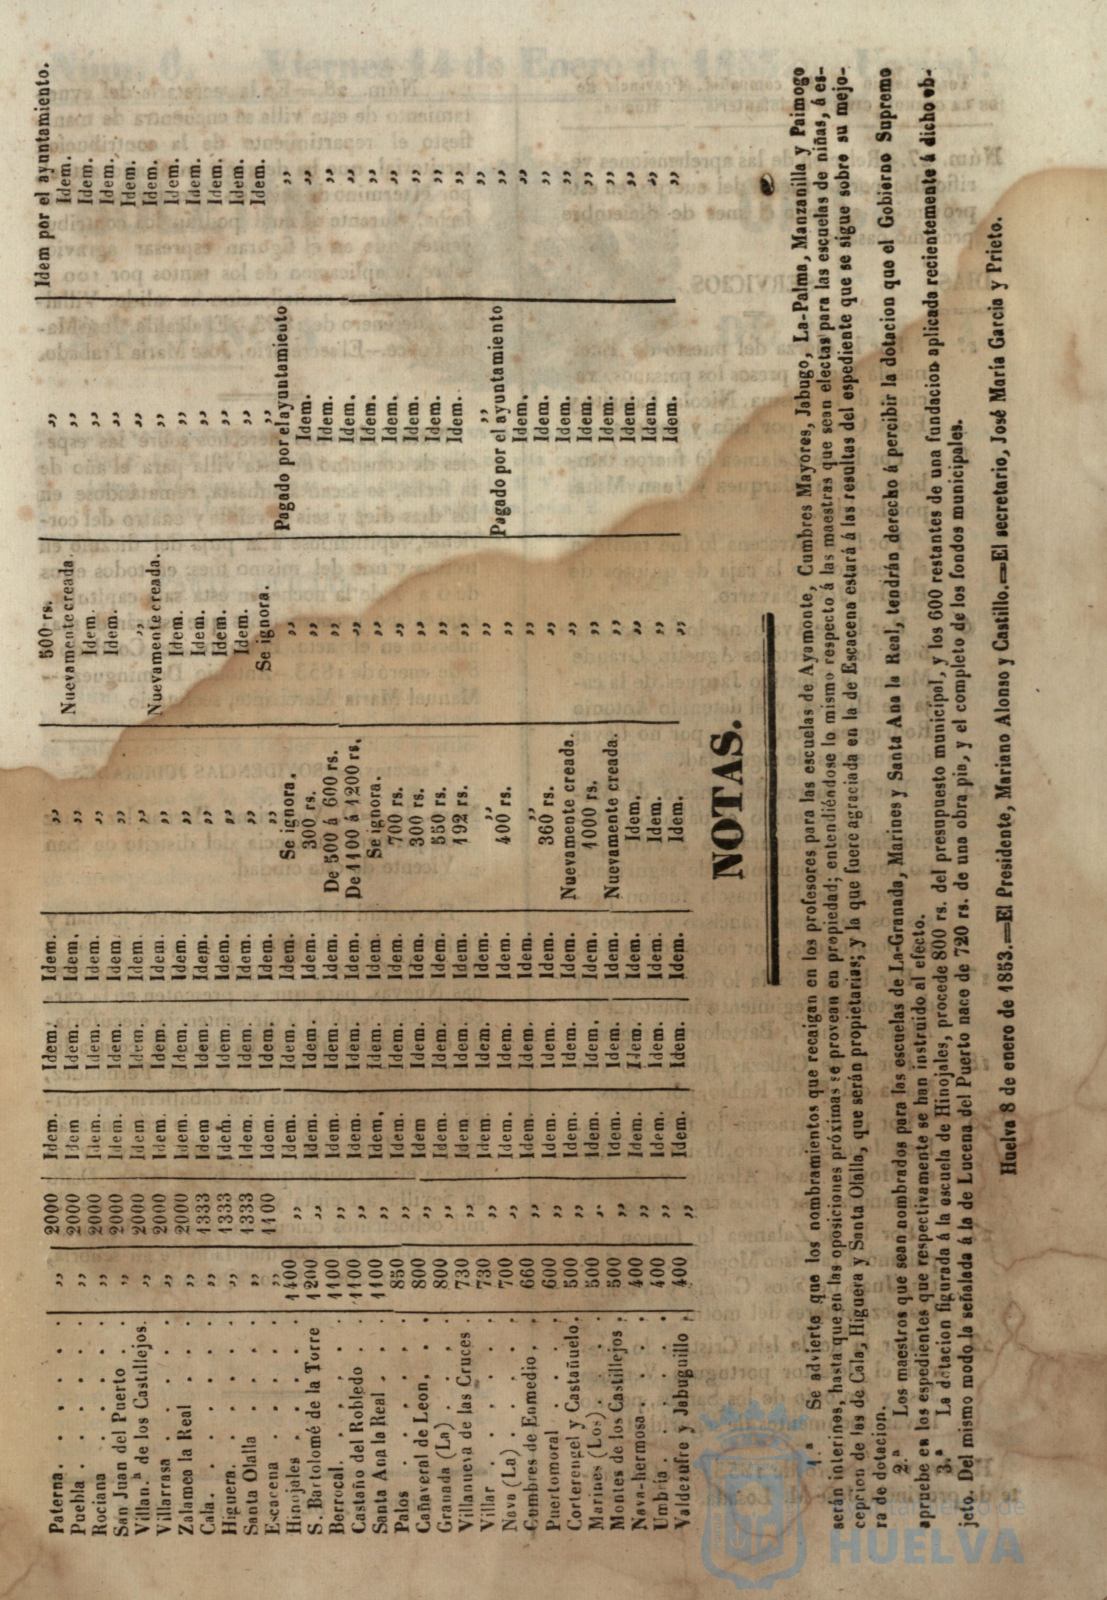 Paterna. . . . . . ,, 2000 Idem. Idem. Idem. ,, 500 rs. ,, Idem por el ayuntamiento.
Puebla . . . . . . ,, 2000 Idem. Idem. Idem. ,, Nuevamente creada. ,, Idem.
Rociana . . . . . ,, 2000 Idem. Idem. Idem. ,, Idem. ,, Idem.
San Juan del Puerto . . ,, 2000 Idem. Idem. Idem. ,, Idem. ,, Idem.
Villan.ª de los Castillejos. ,, 2000 Idem. Idem. Idem. ,, ,, ,, Idem.
Villarrasa . . . . . ,, 2000 Idem. Idem. Idem. ,, Nuevamente creada. ,, Idem.
Zalamea la Real . . . ,, 2000 Idem. Idem. Idem. ,, Idem. ,, Idem.
Cala. . . . . . . ,, 1333 Idem Idem. Idem. ,, Idem. ,, Idem.
Higuera. . . . . . ,, 1333 Idem. Idem. Idem. ,, Idem. ,, Idem.
Santa Olalla . . . . ,, 1333 Idem. Idem. Idem. ,, Idem. ,, Idem.
Escacena . . . . . ,, 1100 Idem. Idem. Idem. ,, Se ignora. ,, Idem.
Hinojales . . . . . 1400 ,, Idem. Idem. Idem. Se ignora. ,, Pagado por el ayuntamiento ,,
S. Bartolomé de la Torre 1200 ,, Idem. Idem. Idem. 300 rs. ,, Idem. ,,
Berrocal. . . . . . 1100 ,, Idem. Idem. Idem. De 500 á 600 rs. ,, Idem. ,,
Castaño del Robledo . . 1100 ,, Idem. Idem. Idem. De 1100 á 1200 rs. ,, Idem. ,,
Santa Ana la Real . . . 1100 ,, Idem. Idem. Idem. Se ignora. ,, Idem. ,,
Palos . . . . . . 850 ,, Idem. Idem. Idem. 700 rs. ,, Idem. ,,
Cañaveral de Leon, . . 800 ,, Idem Idem. Idem. 300 rs. ,, Idem. ,,
Granada (La) . . . . 800 ,, Idem. Idem. Idem. 550 rs. ,, Idem. ,,
Villanueva de las Cruces . 730 ,, Idem Idem. Idem. 192 rs. ,, Idem. ,,
Villar . . . . . . 730 ,, Idem. Idem. Idem. ,, ,, ,, ,,
Nava (La) . . . . . 700 ,, Idem. Idem. Idem. 400 rs. ,, Pagado por el ayuntamiento ,,
Cumbres de Enmedio . . 660 ,, Idem. Idem. Idem. ,, ,, Idem. ,,
Puertomoral . . . . 600 ,, Idem. Idem. Idem. 360 rs. ,, Idem. ,,
Corterengel y Castañuelo. 500 ,, Idem. Idem. Idem. Nuevamente creada. ,, Idem. ,,
Marines (Los) . . . . 500 ,, Idem. Idem. Idem. 1000 rs. ,, Idem. ,,
Montes de los Castillejos . 500 ,, Idem. Idem. Idem. Nuevamente creada. ,, Idem. ,,
Nava-hermosa. . . . 400 ,, Idem. Idem. Idem. Idem. ,, Idem. ,,
Umbria . . . . . . 400 ,, Idem. Idem. Idem. Idem. ,, Idem. ,,
Valdezufre y Jabuguillo . 400 ,, Idem. Idem. Idem. Idem. ,, Idem. ,,
NOTAS.
1.ª Se advierte que los nombramientos que recaigan en los profesores para las escuelas de Ayamonte, Cumbres Mayores, Jabugo, La-Palma, Manzanilla y Paimogo
serán interinos, hasta que en las oposiciones próximas se provean en propiedad; entendiéndose lo mismo respecto á las maestras que sean electas para las escuelas de niñas, á es-
cepcion de las de Cala, Higuera y Santa Olalla, que serán propietarias; y la que fuere agraciada en la de Escacena estará á las resultas del espediente que se sigue sobre su mejo-
ra de dotacion.
2.ª Los maestros que sean nombrados para las escuelas de La-Granada, Marines y Santa Ana la Real, tendrán derecho á percibir la dotacion que el Gobierno Supremo
apruebe en los espedientes que respectivamente se han instruido al efecto.
3.ª La dotacion figurada á la escuela de Hinojales, procede 800 rs. del presupuesto municipal, y los 600 restantes de una fundacion aplicada recientemente á dicho ob-
jeto. Del mismo modo la señalada á la de Lucena del Puerto nace de 720 rs. de una obra pia, y el completo de los fondos municipales.
Huelva 8 de enero de 1853.—El Presidente, Mariano Alonso y Castillo.—El secretario, José María Garcia y Prieto.
Ayuntamiento de
HUELVA